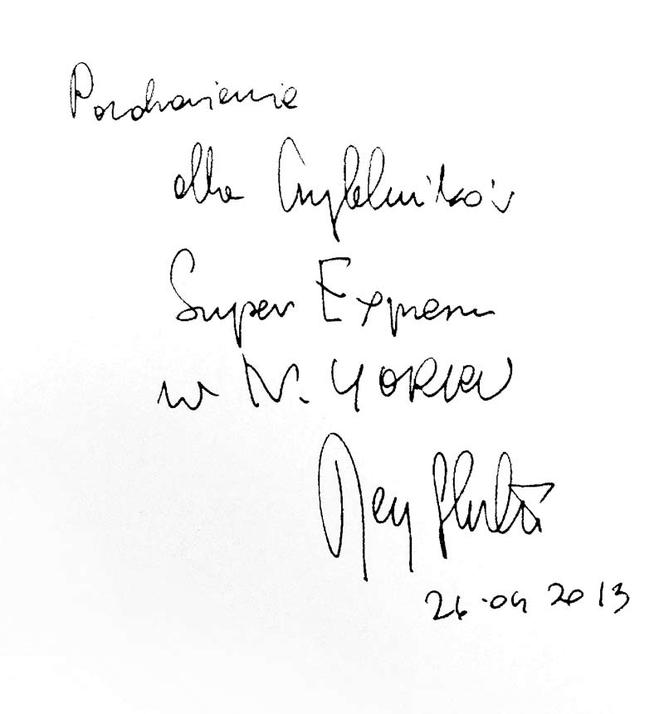 Pozdrowienia
dla Czytelników
Super Expressu
w N. YORKU
Jerzy
26.04 2013